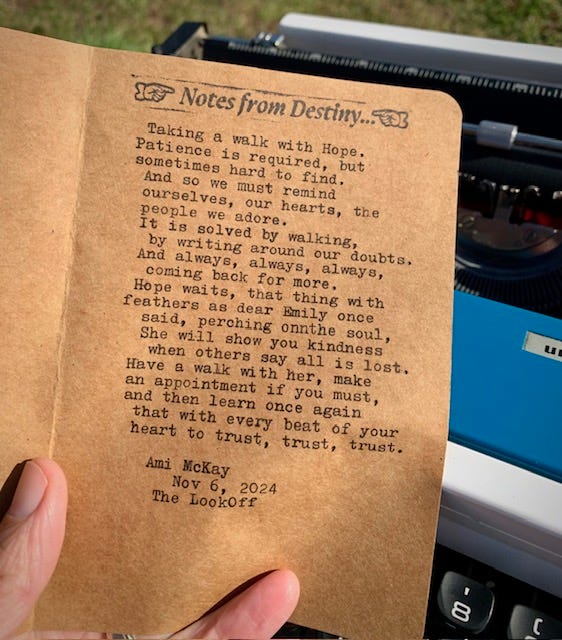 Notes from Destiny...
Taking a walk with Hope.
Patience is required, but
sometimes hard to find.
And so we must remind
ourselves, our hearts, the
people we adore.
It is solved by walking,
by writing around our doubts.
And always, always, always,
coming back for more.
Hope waits, that thing with
feathers as dear Emily once
said, perching onnthe soul,
She will show you kindness
when others say all is lost.
Have a walk with her, make
an appointment if you must,
and then learn once again
that with every beat of your
heart to trust, trust, trust.
Ami McKay
Nov 6, 2024
The LookOff
'
8